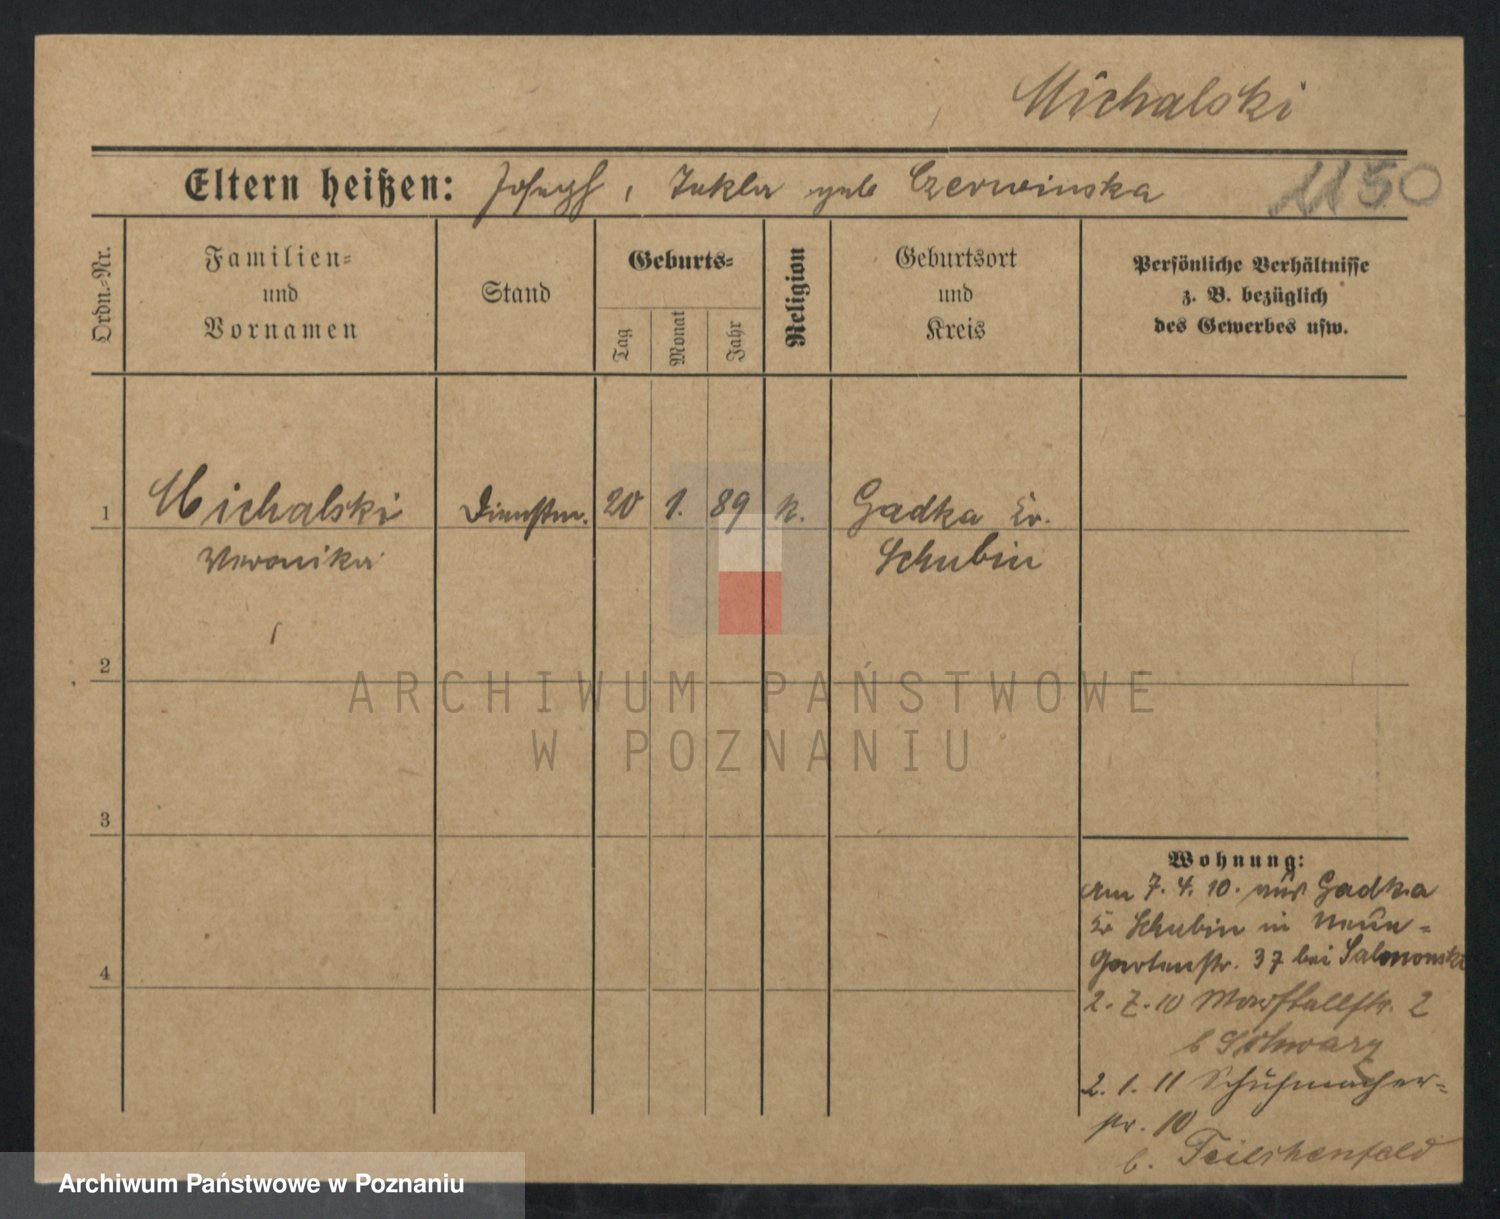 Michalski
Eltern heißen: Joseph, Tekla geb Czerwinska
1150
Ordn.-Nr.
Familien-
und
Vornamen
Stand
Geburts-
Tag
Monat
Jahr
Religion
Geburtsort
und
Kreis
Persönliche Verhältnisse
z. B. bezüglich
des Gewerbes usw.
1 Michalski Dienstm. 20 1. 89 k. Gadka Kr.
Veronika Schubin
2
3
4
Wohnung:
Am 7. 4. 10. aus Gadka
Kr Schubin in Neue-
Gartenstr. 37 bei Salomonski
2. 7. 10 Marstallstr. 2
b Schwarz
2. 1. 11 Schuhmacher-
str. 10
b.
ARCHIWUM PAŃSTWOWE
W POZNANIU
Archiwum Państwowe w Poznaniu